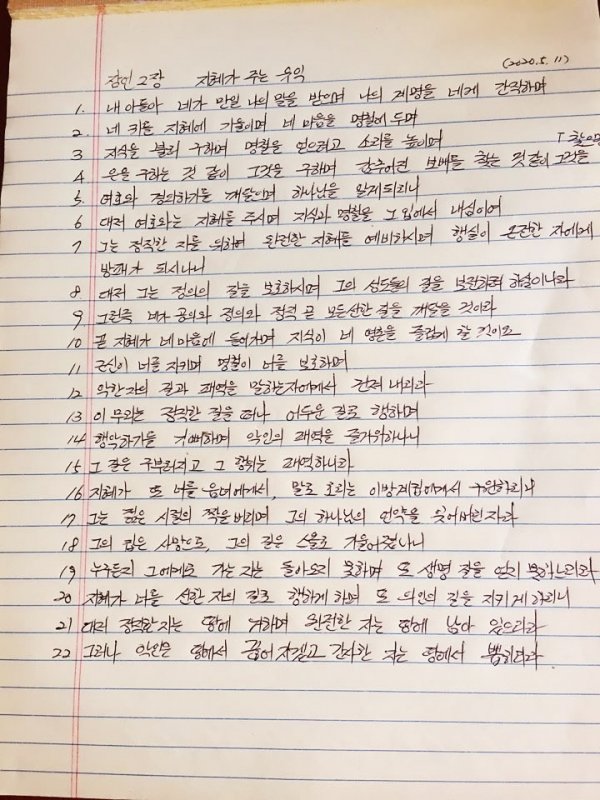 (2020.5.11)
잠언 2장 지혜가 주는 유익
1. 내 아들아 네가 만일 나의 말을 받으며 나의 계명을 네게 간직하며
2. 네 귀를 지혜에 기울이며 네 마음을 명철에 두며
3 지식을 불러 구하며 명철을 얻으려고 소리를 높이며
4 은을 구하는 것 같이 그것을 구하며 감추어진 보배를 찾는 것 같이 그것을 찾으면
5 여호와 경외하기를 깨달으며 하나님을 알게 되리니
6 대저 여호와는 지혜를 주시며 지식과 명철을 그 입에서 내심이며
7 그는 정직한 자를 위하여 완전한 지혜를 예비하시며 행실이 온전한 자에게
방패가 되시나니
8 대저 그는 정의의 길을 보호하시며 그의 성도들의 길을 보전하려 하심이니라
9 그런즉 네가 공의와 정의와 정직 곧 모든 선한 길을 깨달을 것이라
10 곧 지혜가 네 마음에 들어가며 지식이 네 영혼을 즐겁게 할 것이요
11 근신이 너를 지키며 명철이 너를 보호하며
12 악한 자의 길과 패역을 말하는 자에게서 건져 내리라
13 이 무리는 정직한 길을 떠나 어두운 길로 행하며
14 행악하기를 기뻐하며 악인의 패역을 즐거워하나니
15 그 길은 구부러지고 그 행위는 패역하니라
16 지혜가 또 너를 음녀에게서, 말로 호리는 이방계집에게서 구원하리니
17 그는 젊은 시절의 짝을 버리며 그의 하나님의 언약을 잊어버린 자라
18 그의 집은 사망으로, 그의 길은 스올로 기울어졌나니
19 누구든지 그에게로 가는 자는 돌아오지 못하며 또 생명 길을 얻지 못하느니라
20 지혜가 너를 선한 자의 길로 행하게 하며 또 의인의 길을 지키게 하리니
21 대저 정직한 자는 땅에 거하며 완전한 자는 땅에 남아 있으리라
22 그러나 악인은 땅에서 끊어지겠고 간사한 자는 땅에서 뽑히리라